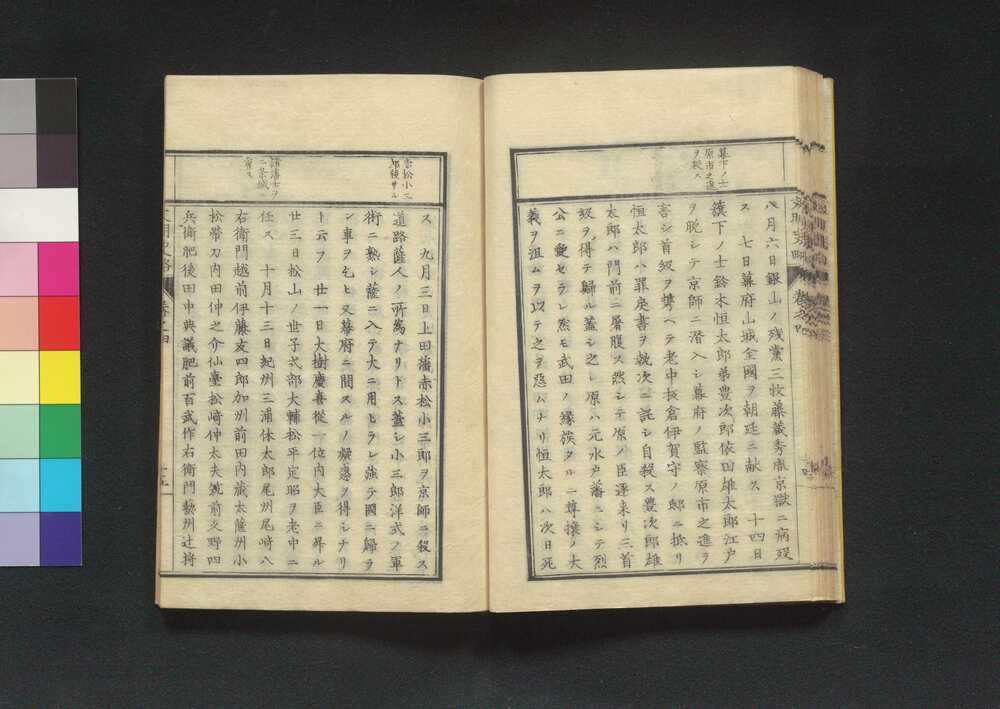 幕下ノ士
原市之進
ヲ殺ス
八月六日銀山ノ残黨三牧藤蔵秀胤京獄ニ病歿
ス 七日幕府山城全國ヲ朝廷ニ献ス 十四日
旗下ノ士鈴木恒太郎弟豊次郎依田雄太郎江戸
ヲ脱シテ京師ニ潜入シ幕府ノ監察原市之進ヲ
害シ首級ヲ携ヘテ老中板倉伊賀守ノ邸ニ抵リ
恒太郎ハ罪戻書ヲ執次ニ託シ自殺ス豊次郎雄
太郎ハ門前ニ屠腹ス然シテ原ノ臣逐来リ二首
級ヲ得テ歸ル蓋シ之レ原ハ元水戸藩ニシテ烈
公ニ愛セラレ然モ武田ノ縁族タルニ尊攘ノ大
義ヲ沮ムヲ以テ之ヲ惡ムナリ恒太郎ハ次日死
赤松小三
郎横サル
諸藩士ヲ
二条城ニ
會ス
ス 九月三日上田藩赤松小三郎ヲ京師ニ殺ス
道路薩人ノ所為ナリトス蓋シ小三郎洋式ノ軍
術ニ熟シ薩ニ入テ大ニ用ヒラレ強テ國ニ歸ラ
ン事ヲ乞ヒ又幕府ニ間スルノ疑惑ヲ得シナリ
ト云フ 廿一日大樹慶喜従一位内大臣ニ昇ル
廿三日松山ノ世子式部大輔松平定昭ヲ老中ニ
任ス 十月十三日紀州三浦休太郎尾州尾崎八
右衛門越前伊藤友四郎加州前田内蔵太薩州小
松帯刀内田仲之介仙臺松﨑仲太夫筑前久野四
兵衛肥後田中典議肥前百武作右衛門藝州辻将